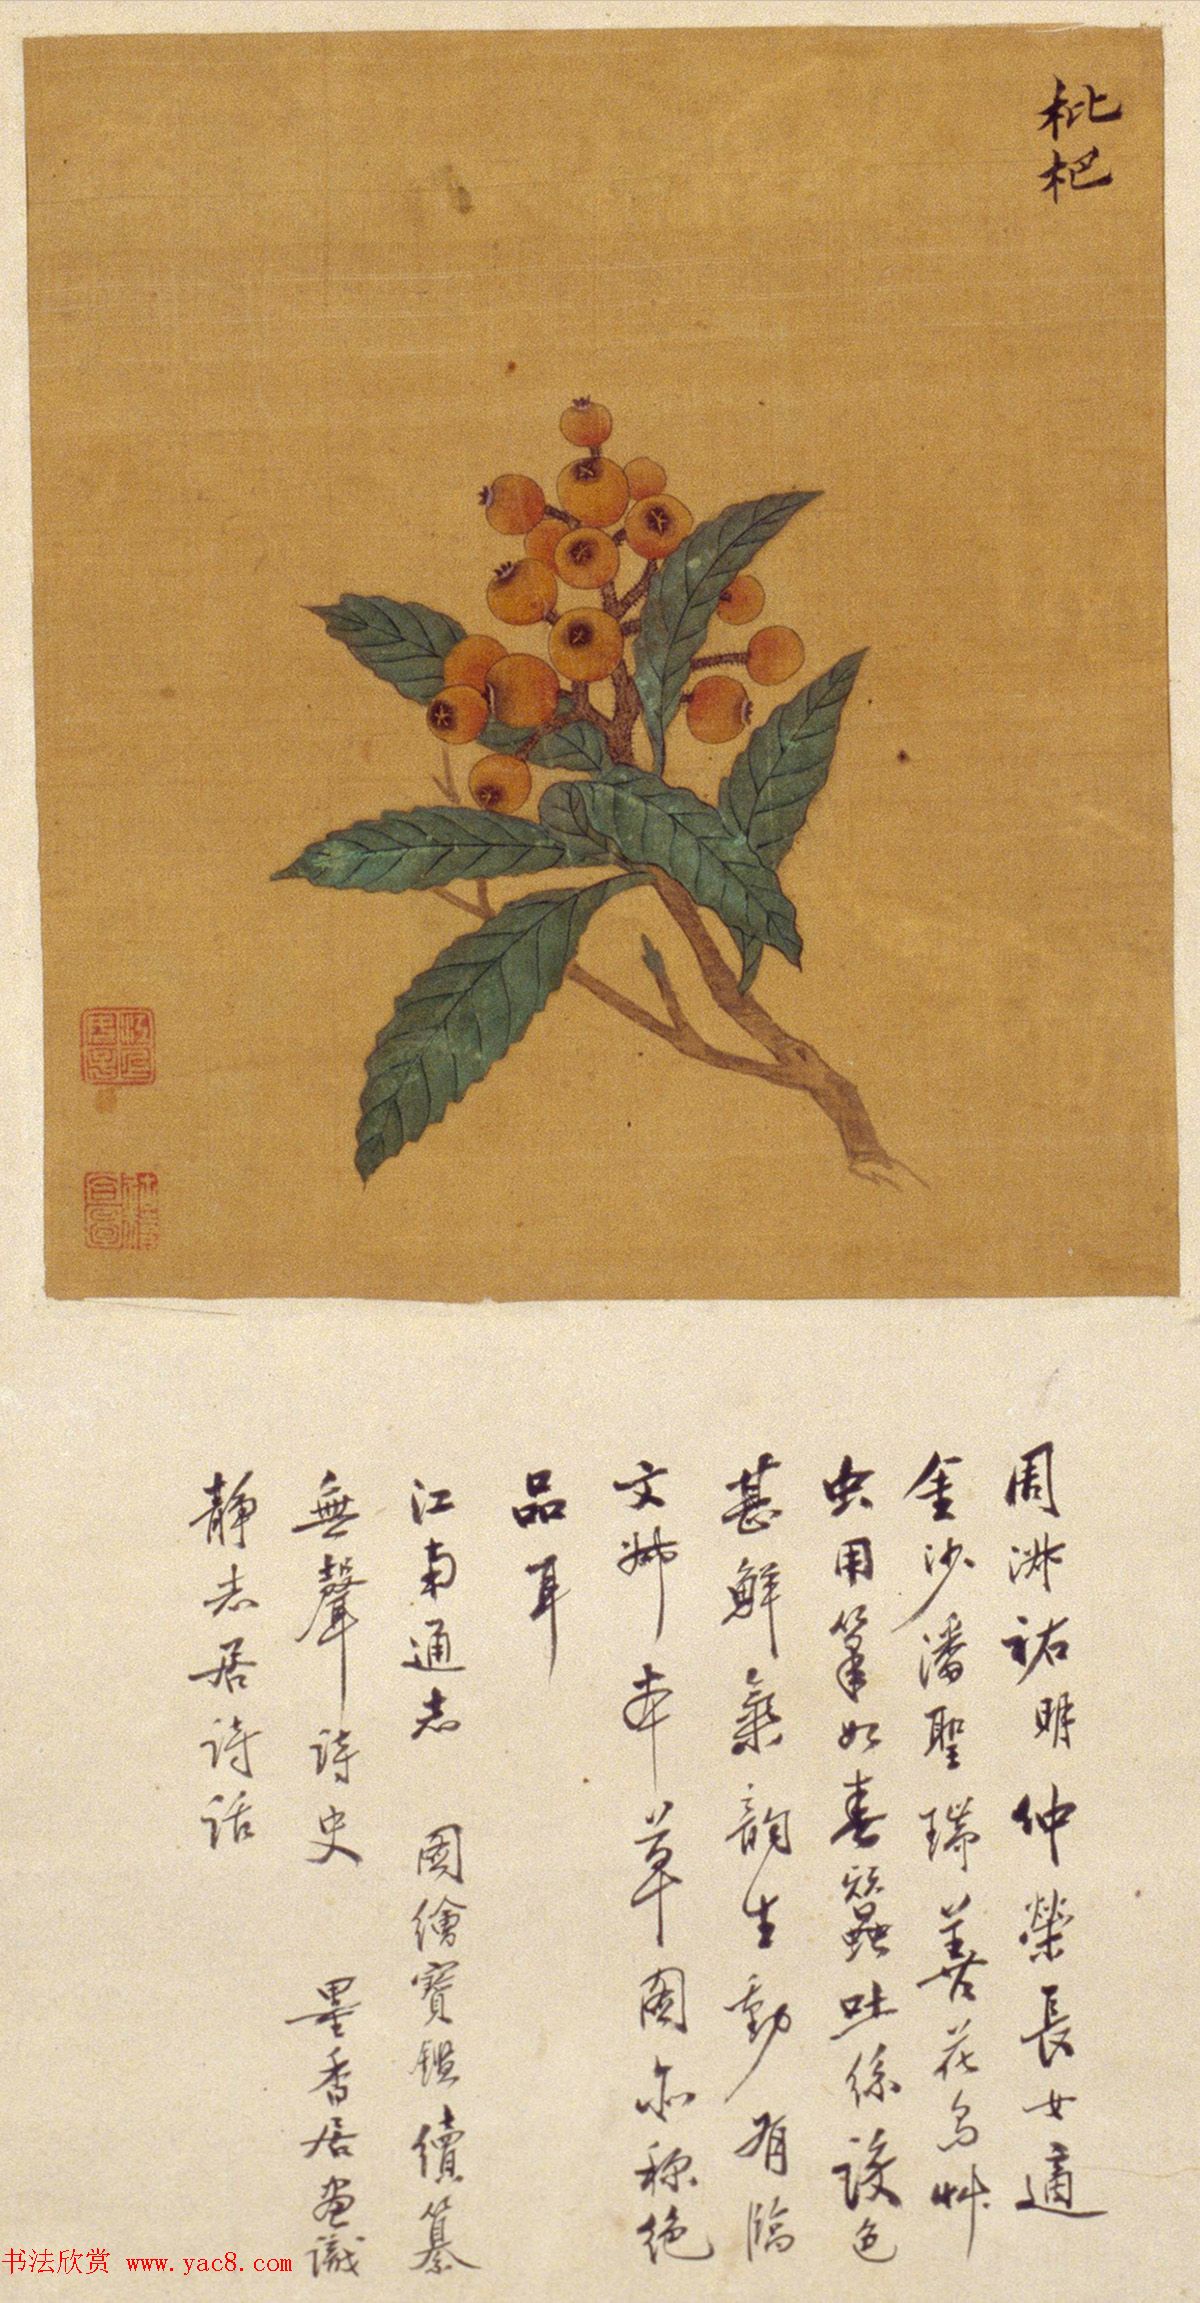 枇杷
周淑祜明仲榮長女適
金沙潘聖瑞善花鳥艸
虫用筆如春蠶吐絲設色
甚鮮氣韻生動有臨
文俶本草圖亦稱絕
品耳
江南通志 圖繪寶鑑續纂
無聲詩史 墨香居畫識
靜志居詩話
书法欣赏 www.yac8.com